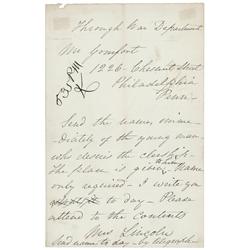 Through War Department
Mr Gomfort
1226. Chesnut Street
Philadelphia
Penn.
5 35 PM
Send the name, imme
diately of the young man
who desires the clerkship
The place is given, Name
only required - I write you
to day - Please
attend to the Contents
Mrs Lincoln
Send name to day - by telegraph